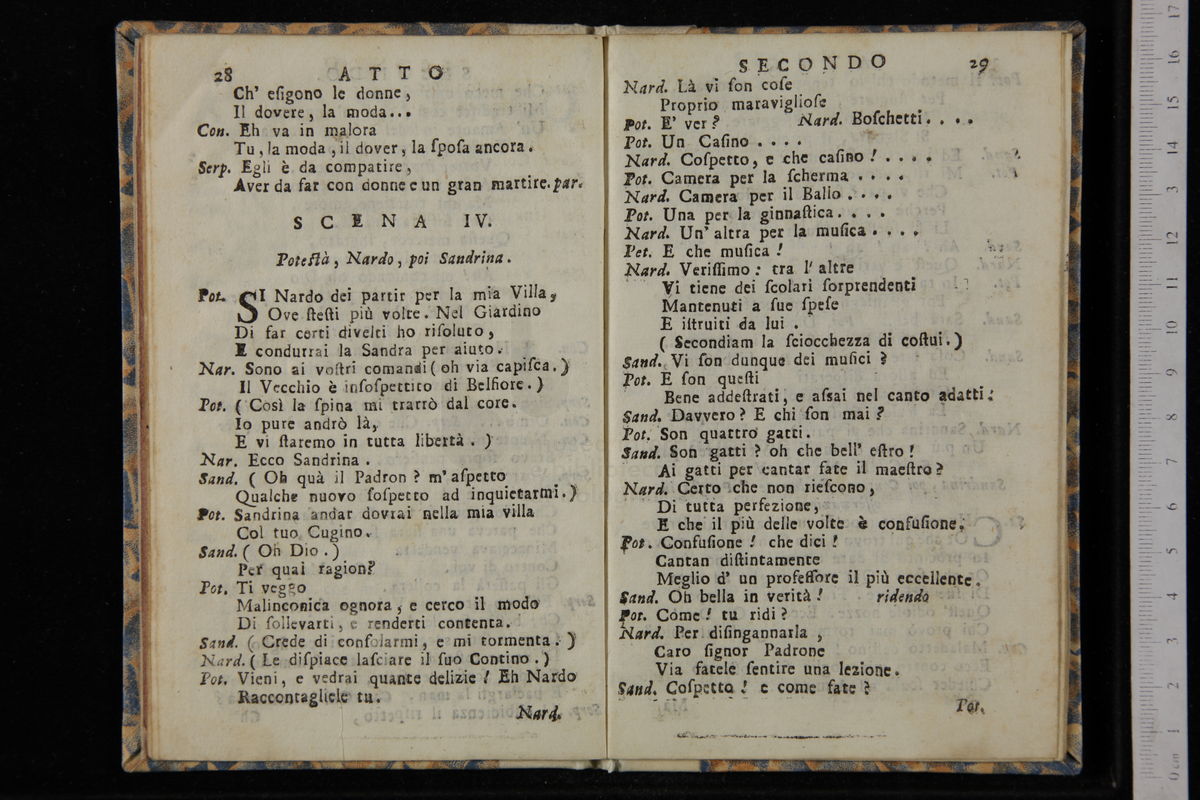 28 ATTO
Ch' eſigono le donne,
Il dovere, la moda...
Con. Eh va in malora
Tu, la moda, il dover, la ſpoſa ancora.
Serp. Egli è da compatire,
Aver da far con donne e un gran martire. par.
SCENA IV.
Poteſtà, Nardo, poi Sandrina.
Pot. SI Nardo dei partir per la mia Villa,
Ove ſteſti più volte. Nel Giardino
Di far certi divelti ho riſoluto,
E condurrai la Sandra per aiuto.
Nar. Sono ai voſtri comandi (oh via capiſca.)
Il Vecchio è inſoſpettito di Belfiore.)
Pot. (Così la ſpina mi trarrò dal core.
Io pure andrò là,
E vi ſtaremo in tutta libertà.)
Nar. Ecco Sandrina.
Sand. (Oh quà il Padron? m' aſpetto
Qualche nuovo ſoſpetto ad inquietarmi.)
Pot. Sandrina andar dovrai nella mia villa
Col tuo Cugino.
Sand. (Oh Dio.)
Per quai ragion?
Pot. Ti veggo
Malinconica ognora, e cerco il modo
Di ſollevarti, e renderti contenta.
Sand. (Crede di conſolarmi, e mi tormenta.)
Nard. (Le diſpiace laſciare il ſuo Contino.)
Pot. Vieni, e vedrai quante delizie! Eh Nardo
Raccontagliele tu.
Nard.
SECONDO 29
Nard. Là vi ſon coſe
Proprio maraviglioſe
Pot. E' ver? Nard. Boſchetti....
Pot. Un Caſino....
Nard. Coſpetto, e che caſino!....
Pot. Camera per la ſcherma....
Nard. Camera per il Ballo....
Pot. Una per la ginnaſtica....
Nard. Un' altra per la muſica....
Pet. E che muſica!
Nard. Veriſſimo: tra l' altre
Vi tiene dei ſcolari ſorprendenti
Mantenuti a ſue ſpeſe
E iſtruiti da lui.
(Secondiam la ſciocchezza di coſtui.)
Sand. Vi ſon dunque dei muſici?
Pot. E ſon queſti
Bene addeſtrati, e aſsai nel canto adatti:
Sand. Davvero? E chi ſon mai?
Pot. Son quattro gatti.
Sand. Son gatti? oh che bell' eſtro!
Ai gatti per cantar fate il maeſtro?
Nard. Certo che non rieſcono,
Di tutta perfezione,
E che il più delle volte è confuſione.
Pot. Confuſione! che dici!
Cantan diſtintamente
Meglio d' un profeſſore il più eccellente.
Sand. Oh bella in verità! ridendo
Pot. Come! tu ridi?
Nard. Per diſingannarla,
Caro ſignor Padrone
Via fatele ſentire una lezione.
Sand. Coſpetto! e come fate?
Pot.
17
16
15
14
13
12
11
10
9
8
7
6
5
4
3
2
1
0 cm